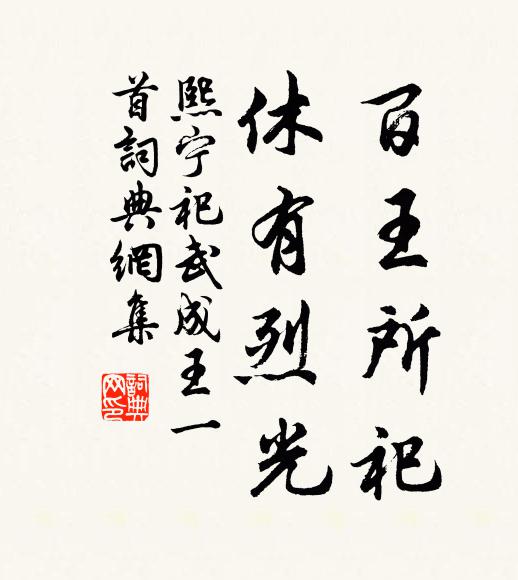 百王所祀
休有烈光
熙宁祀武成王一
首詞典網集
詞典网印